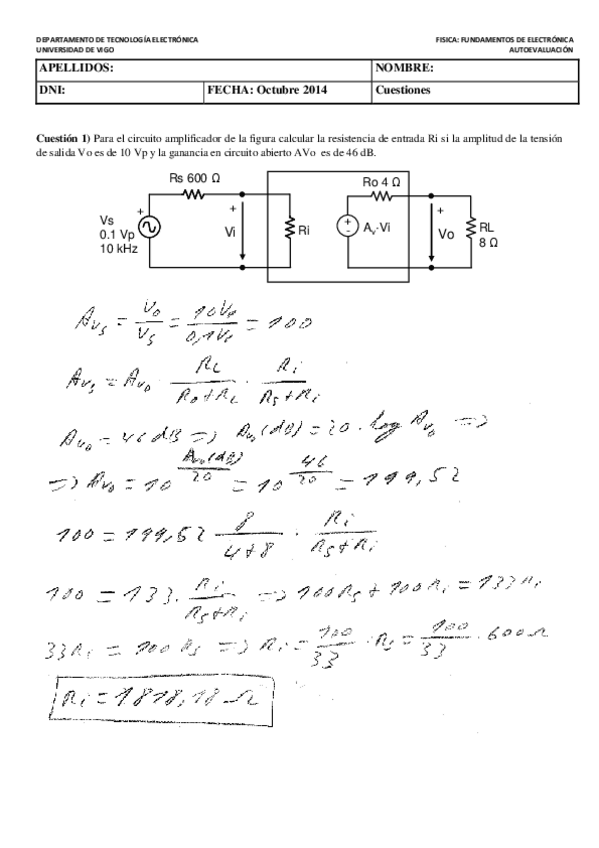 DEPARTAMENTO DE TECNOLOGÍA ELECTRÓNICA FISICA: FUNDAMENTOS DE ELECTRÓNICA
UNIVERSIDAD DE VIGO AUTOEVALUACIÓN
APELLIDOS: NOMBRE:
DNI: FECHA: Octubre 2014 Cuestiones
Cuestión 1) Para el circuito amplificador de la figura calcular la resistencia de entrada Ri si la amplitud de la tensión
de salida Vo es de 10 Vp y la ganancia en circuito abierto AVo es de 46 dB.
Rs 600 Ω Ro 4 Ω
Vs
0.1 Vp
10 kHz
+ + + - +
Vi Ri Av·Vi Vo RL
8 Ω
Avs = Vo/Vs = 10Vp/0,1Vp = 100
Avs = Avo · RL/(Ro+RL) · Ri/(Rs+Ri)
Avo = 46 dB => Avo(dB) = 20 · log Avo =>
=> Avo = 10^(Avo(dB)/20) = 10^(46/20) = 199,52
100 = 199,52 · 8/(4+8) · Ri/(Rs+Ri)
100 = 133 · Ri/(Rs+Ri) => 100Rs + 100Ri = 133Ri
33Ri = 100Rs => Ri = 100/33 · Rs = 100/33 · 600Ω
Ri = 1818,18 Ω